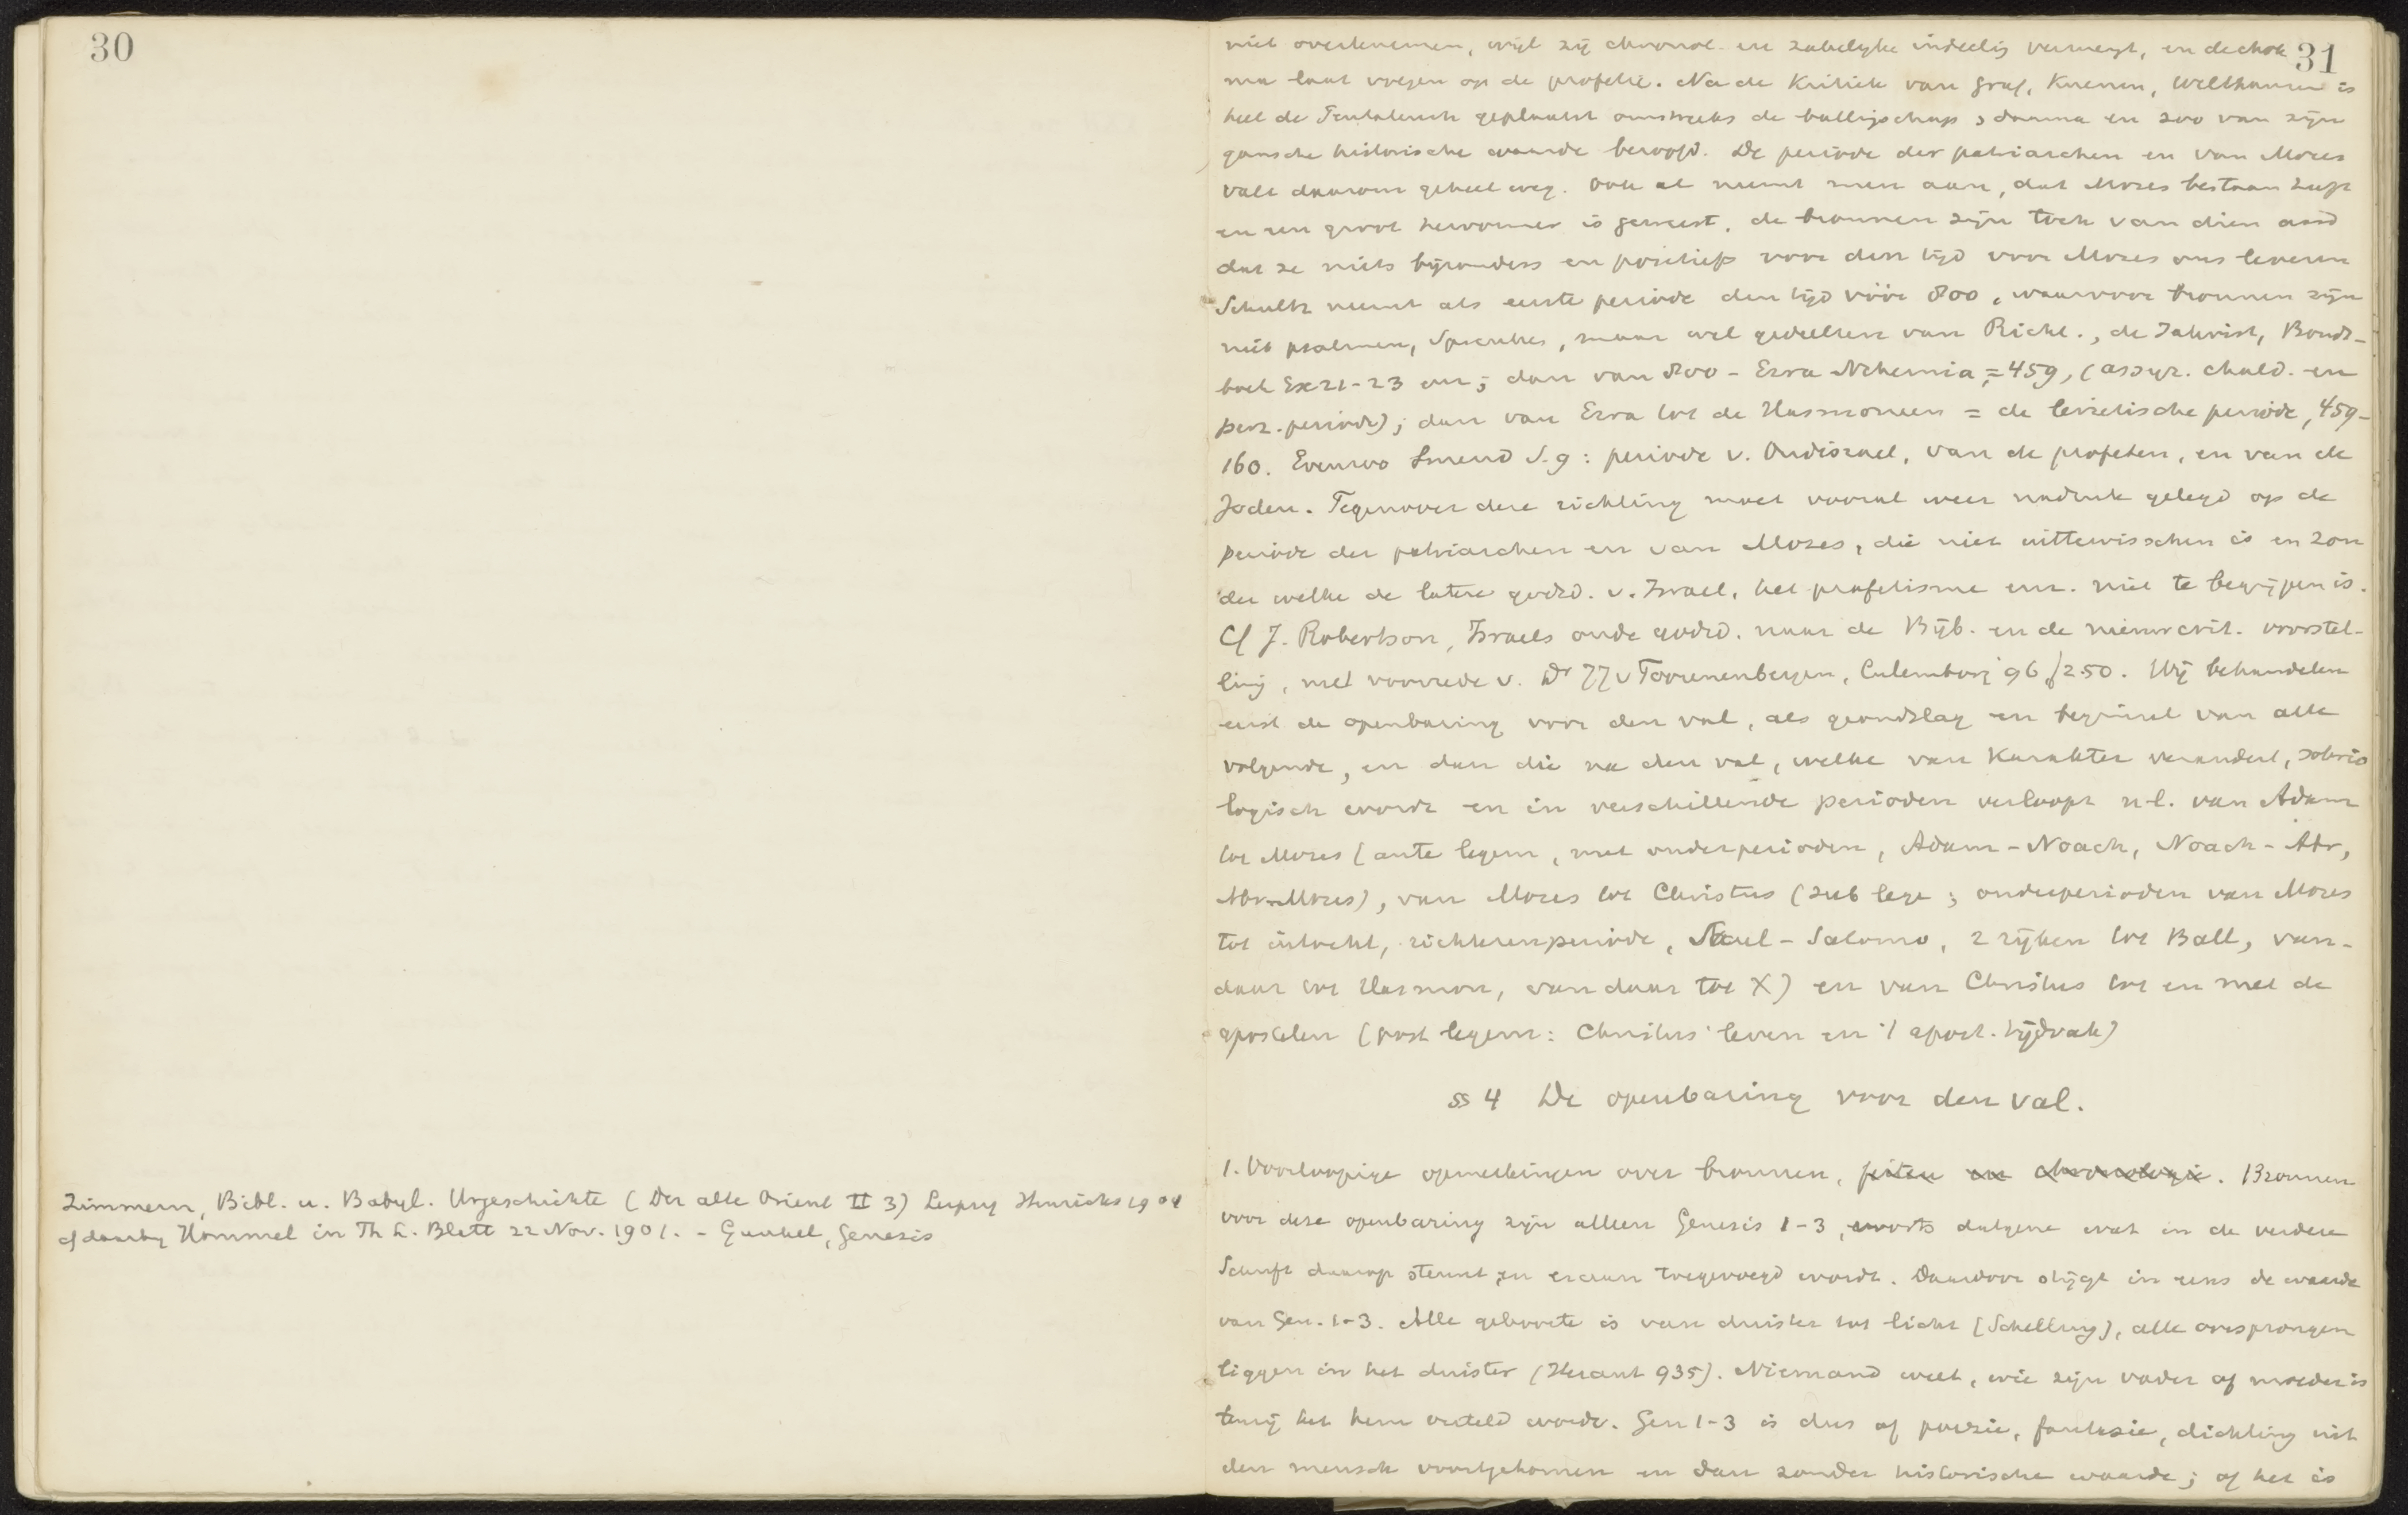 30
Zimmern, Bibl. u. Babyl. Urgeschichte (Der alte Orient II 3) Leipzig Hinrichs 1901
cf daarby Hommel in Th L. Blatt 22 Nov. 1901. - Gunkel, Genesis
31
niet overtenemen, wijl zij chronol. en zakelyke indeelig vermengt, en de chok
ma laat volgen op de profetie. Na de Kritiek van Graf, Kuenen, Wellhausen is
heel de Pentateuch geplaatst omstreeks de ballingschap, daarna en zoo van zijn
gansche historische waarde beroofd. De periode der patriarchen en van Mozes
valt daarom geheel weg. Ook al neemt men aan, dat Mozes bestaan heeft
en een groot hervormer is geweest, de bronnen zijn toch van dien aard
dat ze niets byzonders en positiefs voor den tijd voor Mozes ons leveren
Schultz neemt als eerste periode den tijd vóór 800, waarvoor bronnen zijn
niet psalmen, Spreuken, maar wel gedeelten van Richt., de Jahvist, Bonds-
boek Ex 21-23 enz; dan van 800 - Ezra Nehemia = 459, (assyr. chald. en
perz. periode); dan van Ezra tot de Hasmoneen = de levietische periode, 459-
160. Evenzoo Smend S. 9: periode v. Oudisrael, van de profeten, en van de
Joden. Tegenover deze richting moet vooral weer nadruk gelegd op de
periode der patriarchen en van Mozes, die niet uittewisschen is en zon
der welke de latere godsd. v. Israel, het profetisme enz. niet te begrijpen is.
Cf J. Robertson, Israels oude godsd. naar de Bijb. en de nieuwcrit. voorstel-
ling, met voorrede v. Dr JJ v Toorenenbergen, Culemborg 96 f 2.50. Wij behandelen
eerst de openbaring voor den val, als grondslag en beginsel van alle
volgende, en dan die na den val, welke van karakter verandert, soterio
logisch wordt en in verschillende perioden verloopt n.l. van Adam
tot Mozes (ante legem, met onderperioden, Adam - Noach, Noach - Abr,
Abr-Mozes), van Mozes tot Christus (sub lege; onderperioden van Mozes
tot intocht, richterenperiode, Saul - Salomo, 2 rijken tot Ball, van-
daar tot Hasmon, van daar tot X) en van Christus tot en met de
apostelen (post legem: Christus' leven en 't apost. tijdvak)
§§ 4 De openbaring voor den val.
1. Voorloopige opmerkingen over bronnen, feiten en chronologie. Bronnen
voor deze openbaring zijn alleen Genesis 1-3, voorts datgene wat in de verdere
Schrift daarop steunt en eraan toegevoegd wordt. Daardoor stijgt in eens de waarde
van Gen. 1-3. Alle geboorte is van duister tot licht (Schelling), alle oorsprongen
liggen in het duister (Heraut 935). Niemand weet, wie zijn vader of moeder is
tenzij het hem verteld wordt. Gen 1-3 is dus of poezie, fantasie, dichting uit
den mensch voortgekomen en dan zonder historische waarde; of het is